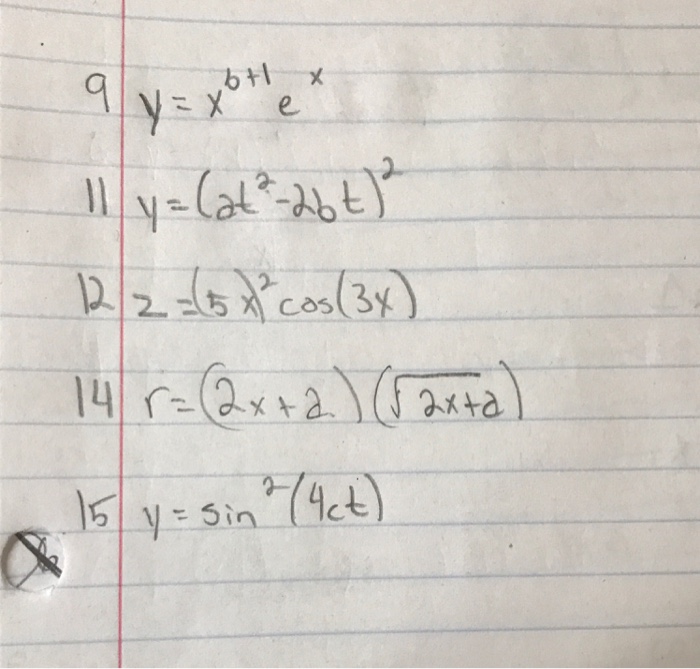 9 y = x^(b+1) e^x
11 y = (2t² - 2bt)²
12 z = (5x)² cos(3x)
14 r = (2x + 2)(√2x+2)
15 y = sin²(4ct)